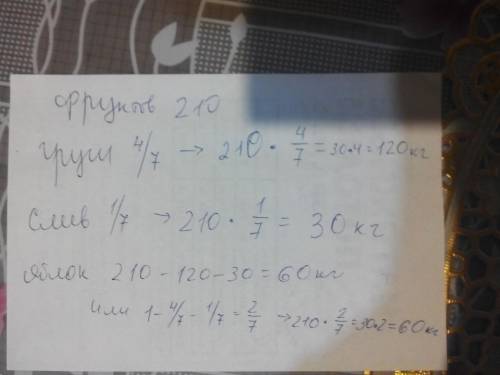 Фруктов 210
груш 4/7 → 210 · 4/7 = 30·4 = 120 кг
Слив 1/7 → 210 · 1/7 = 30 кг
Яблок 210 - 120 - 30 = 60 кг
или 1 - 4/7 - 1/7 = 2/7 → 210 · 2/7 = 30·2 = 60 кг